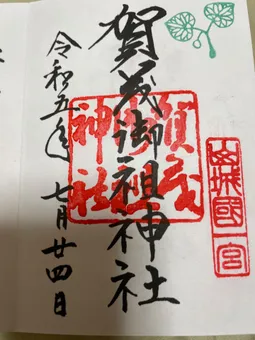 山城國一宮
賀茂御祖神社
賀茂
御祖
神社
令和五年 七月廿四日